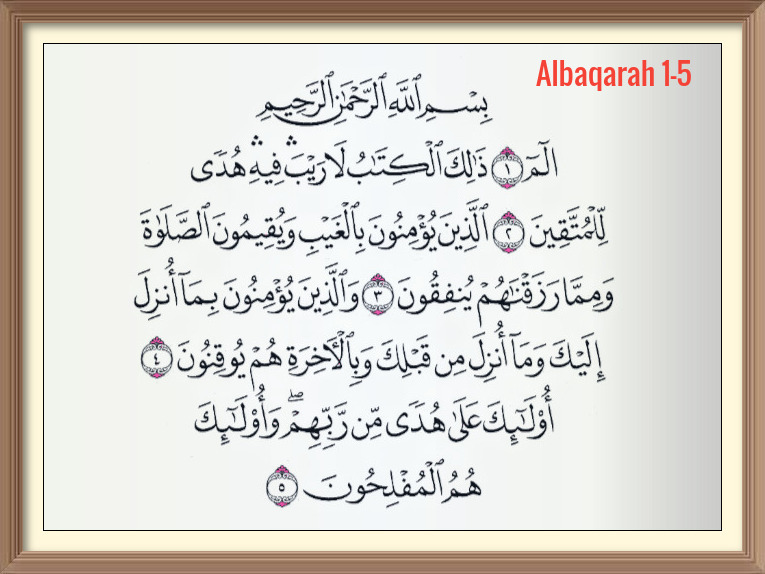 Albaqarah 1-5
بِسْمِ ٱللَّهِ ٱلرَّحْمَٰنِ ٱلرَّحِيمِ
الٓمٓ ١ ذَٰلِكَ ٱلْكِتَٰبُ لَا رَيْبَ ۛ فِيهِ ۛ هُدًى
لِّلْمُتَّقِينَ ٢ ٱلَّذِينَ يُؤْمِنُونَ بِٱلْغَيْبِ وَيُقِيمُونَ ٱلصَّلَوٰةَ
وَمِمَّا رَزَقْنَٰهُمْ يُنفِقُونَ ٣ وَٱلَّذِينَ يُؤْمِنُونَ بِمَآ أُنزِلَ
إِلَيْكَ وَمَآ أُنزِلَ مِن قَبْلِكَ وَبِٱلْأَخِرَةِ هُمْ يُوقِنُونَ ٤
أُوْلَٰٓئِكَ عَلَىٰ هُدًى مِّن رَّبِّهِمْ ۖ وَأُوْلَٰٓئِكَ
هُمُ ٱلْمُفْلِحُونَ ٥